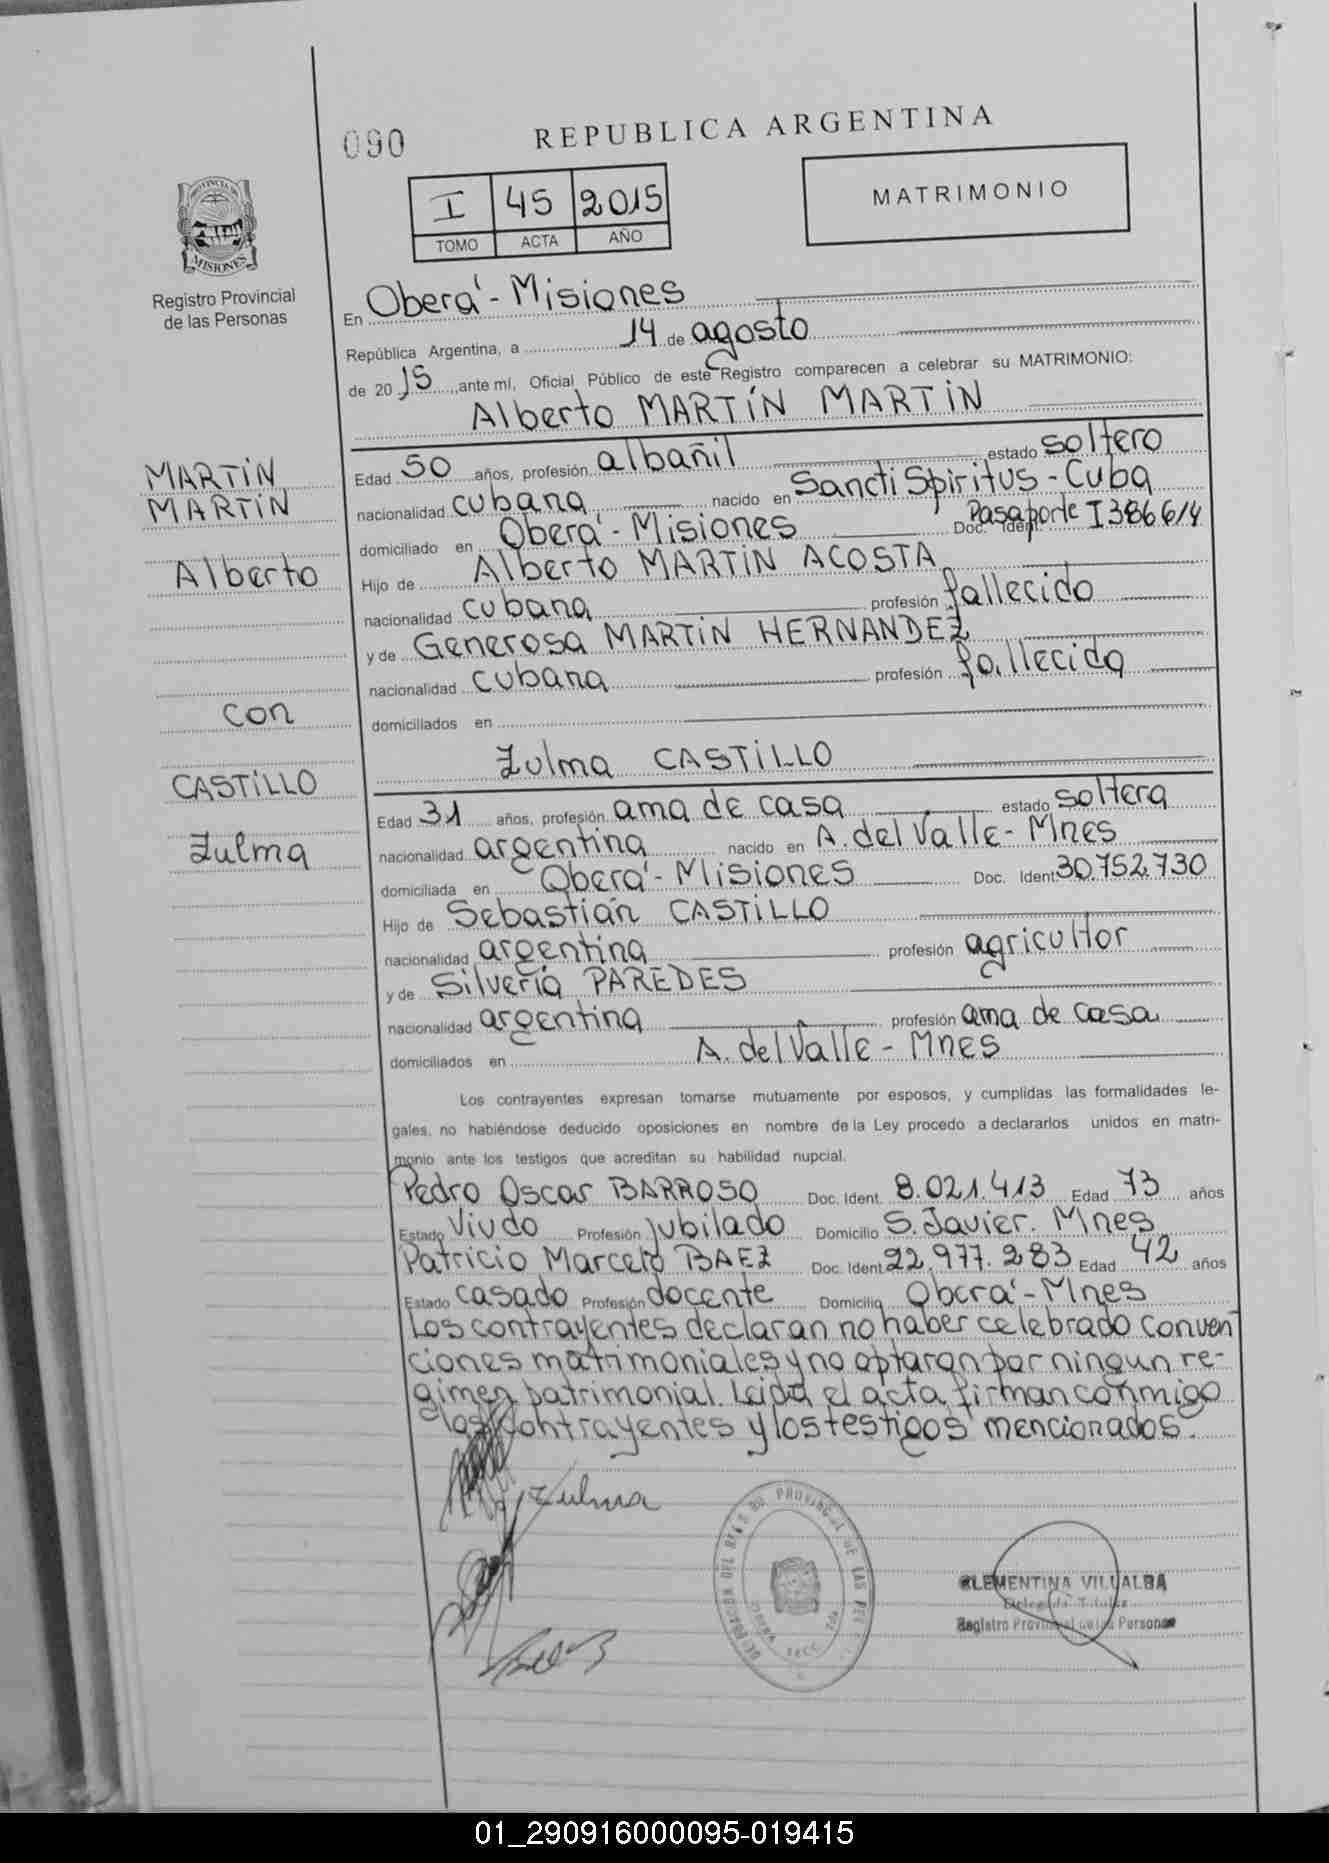 090
REPUBLICA ARGENTINA
I 45 2015
TOMO ACTA AÑO
MATRIMONIO
PROVINCIA DE
MISIONES
Registro Provincial
de las Personas
En Oberá - Misiones
República Argentina, a 14 de agosto
de 2015, ante mí, Oficial Público de este Registro comparecen a celebrar su MATRIMONIO:
Alberto MARTÍN MARTIN
Edad 50 años, profesión albañil estado soltero
nacionalidad cubana nacido en Sancti Spiritus - Cuba
domiciliado en Oberá - Misiones Doc. Ident. Pasaporte I386614
Hijo de Alberto MARTIN ACOSTA
nacionalidad cubana profesión fallecido
y de Generosa MARTIN HERNANDEZ
nacionalidad cubana profesión fallecida
domiciliados en
MARTIN
MARTIN
Alberto
con
CASTILLO
Zulma
Zulma CASTILLO
Edad 31 años, profesión ama de casa estado soltera
nacionalidad argentina nacido en A. del Valle - Mnes
domiciliada en Oberá - Misiones Doc. Ident 30.752.730
Hijo de Sebastián CASTILLO
nacionalidad argentina profesión agricultor
y de Silveria PAREDES
nacionalidad argentina profesión ama de casa
domiciliados en A. del Valle - Mnes
Los contrayentes expresan tomarse mutuamente por esposos, y cumplidas las formalidades le-
gales, no habiéndose deducido oposiciones en nombre de la Ley procedo a declararlos unidos en matri-
monio ante los testigos que acreditan su habilidad nupcial.
Pedro Oscar BARROSO Doc. Ident. 8.021.413 Edad 73 años
Estado Viudo Profesión jubilado Domicilio S. Javier. Mnes
Patricio Marcelo BAEZ Doc. Ident 22.977.283 Edad 42 años
Estado casado Profesión docente Domicilio Oberá - Mnes
Los contrayentes declaran no haber celebrado conven
ciones matrimoniales y no optaran por ningun re-
gimen patrimonial. Leida el acta firman conmigo
los contrayentes y los testigos mencionados.
Zulma
CLEMENTINA VILLALBA
Delegada Titular
Registro Provincial de las Personas
01_290916000095-019415